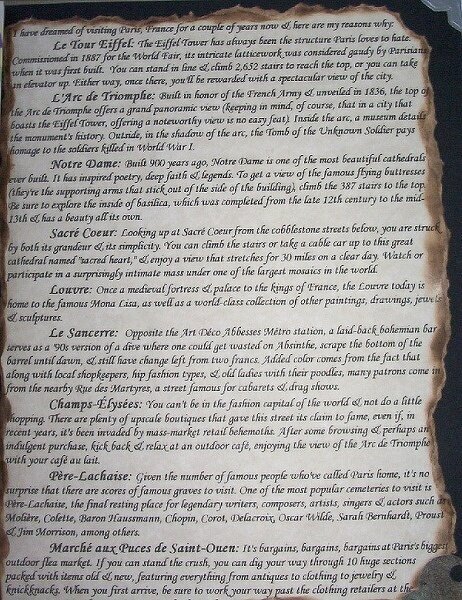 I have dreamed of visiting Paris, France for a couple of years now & here are my reasons why.
Le Tour Eiffel: The Eiffel Tower has always been the structure Paris loves to hate.
Commissioned in 1887 for the World Fair, its intricate latticework was considered gaudy by Parisians
when it was first built. You can stand in line & climb 2,652 stairs to reach the top, or you can take
an elevator up. Either way, once there, you'll be rewarded with a spectacular view of the city.
L'Arc de Triomphe: Built in honor of the French Army & unveiled in 1836, the top of
the Arc de Triomphe offers a grand panoramic view (keeping in mind, of course, that in a city that
boasts the Eiffel Tower, offering a noteworthy view is no easy feat). Inside the arc, a museum details
the monument's history. Outside, in the shadow of the arc, the Tomb of the Unknown Soldier pays
homage to the soldiers killed in World War I.
Notre Dame: Built 900 years ago, Notre Dame is one of the most beautiful cathedrals
ever built. It has inspired poetry, deep faith & legends. To get a view of the famous flying buttresses
(they're the supporting arms that stick out of the side of the building), climb the 387 stairs to the top.
Be sure to explore the inside of basilica, which was completed from the late 12th century to the mid-
13th & has a beauty all its own.
Sacré Coeur: Looking up at Sacré Coeur from the cobblestone streets below, you are struck
by both its grandeur & its simplicity. You can climb the stairs or take a cable car up to this great
cathedral named "sacred heart," & enjoy a view that stretches for 30 miles on a clear day. Watch or
participate in a surprisingly intimate mass under one of the largest mosaics in the world.
Louvre: Once a medieval fortress & palace to the kings of France, the Louvre today is
home to the famous Mona Lisa, as well as a world-class collection of other paintings, drawings, jewels
& sculptures.
Le Sancerre: Opposite the Art Déco Abbesses Métro station, a laid-back bohemian bar
serves as a '90s version of a dive where one could get wasted on Absinthe, scrape the bottom of the
barrel until dawn, & still have change left from two francs. Added color comes from the fact that
along with local shopkeepers, hip fashion types, & old ladies with their poodles, many patrons come in
from the nearby Rue des Martyres, a street famous for cabarets & drag shows.
Champs-Élysées: You can't be in the fashion capital of the world & not do a little
shopping. There are plenty of upscale boutiques that gave this street its claim to fame, even if, in
recent years, it's been invaded by mass-market retail behemoths. After some browsing & perhaps an
indulgent purchase, kick back & relax at an outdoor café, enjoying the view of the Arc de Triomphe
with your café au lait.
Père-Lachaise: Given the number of famous people who've called Paris home, it's no
surprise that there are scores of famous graves to visit. One of the most popular cemeteries to visit is
Père-Lachaise, the final resting place for legendary writers, composers, artists, singers & actors such as
Molière, Colette, Baron Haussmann, Chopin, Corot, Delacroix, Oscar Wilde, Sarah Bernhardt, Proust
& Jim Morrison, among others.
Marché aux Puces de Saint-Ouen: It's bargains, bargains, bargains at Paris's biggest
outdoor flea market. If you can stand the crush, you can dig your way through 10 huge sections
packed with items old & new, featuring everything from antiques to clothing to jewelry &
knickknacks. When you first arrive, be sure to work your way past the clothing retailers at the